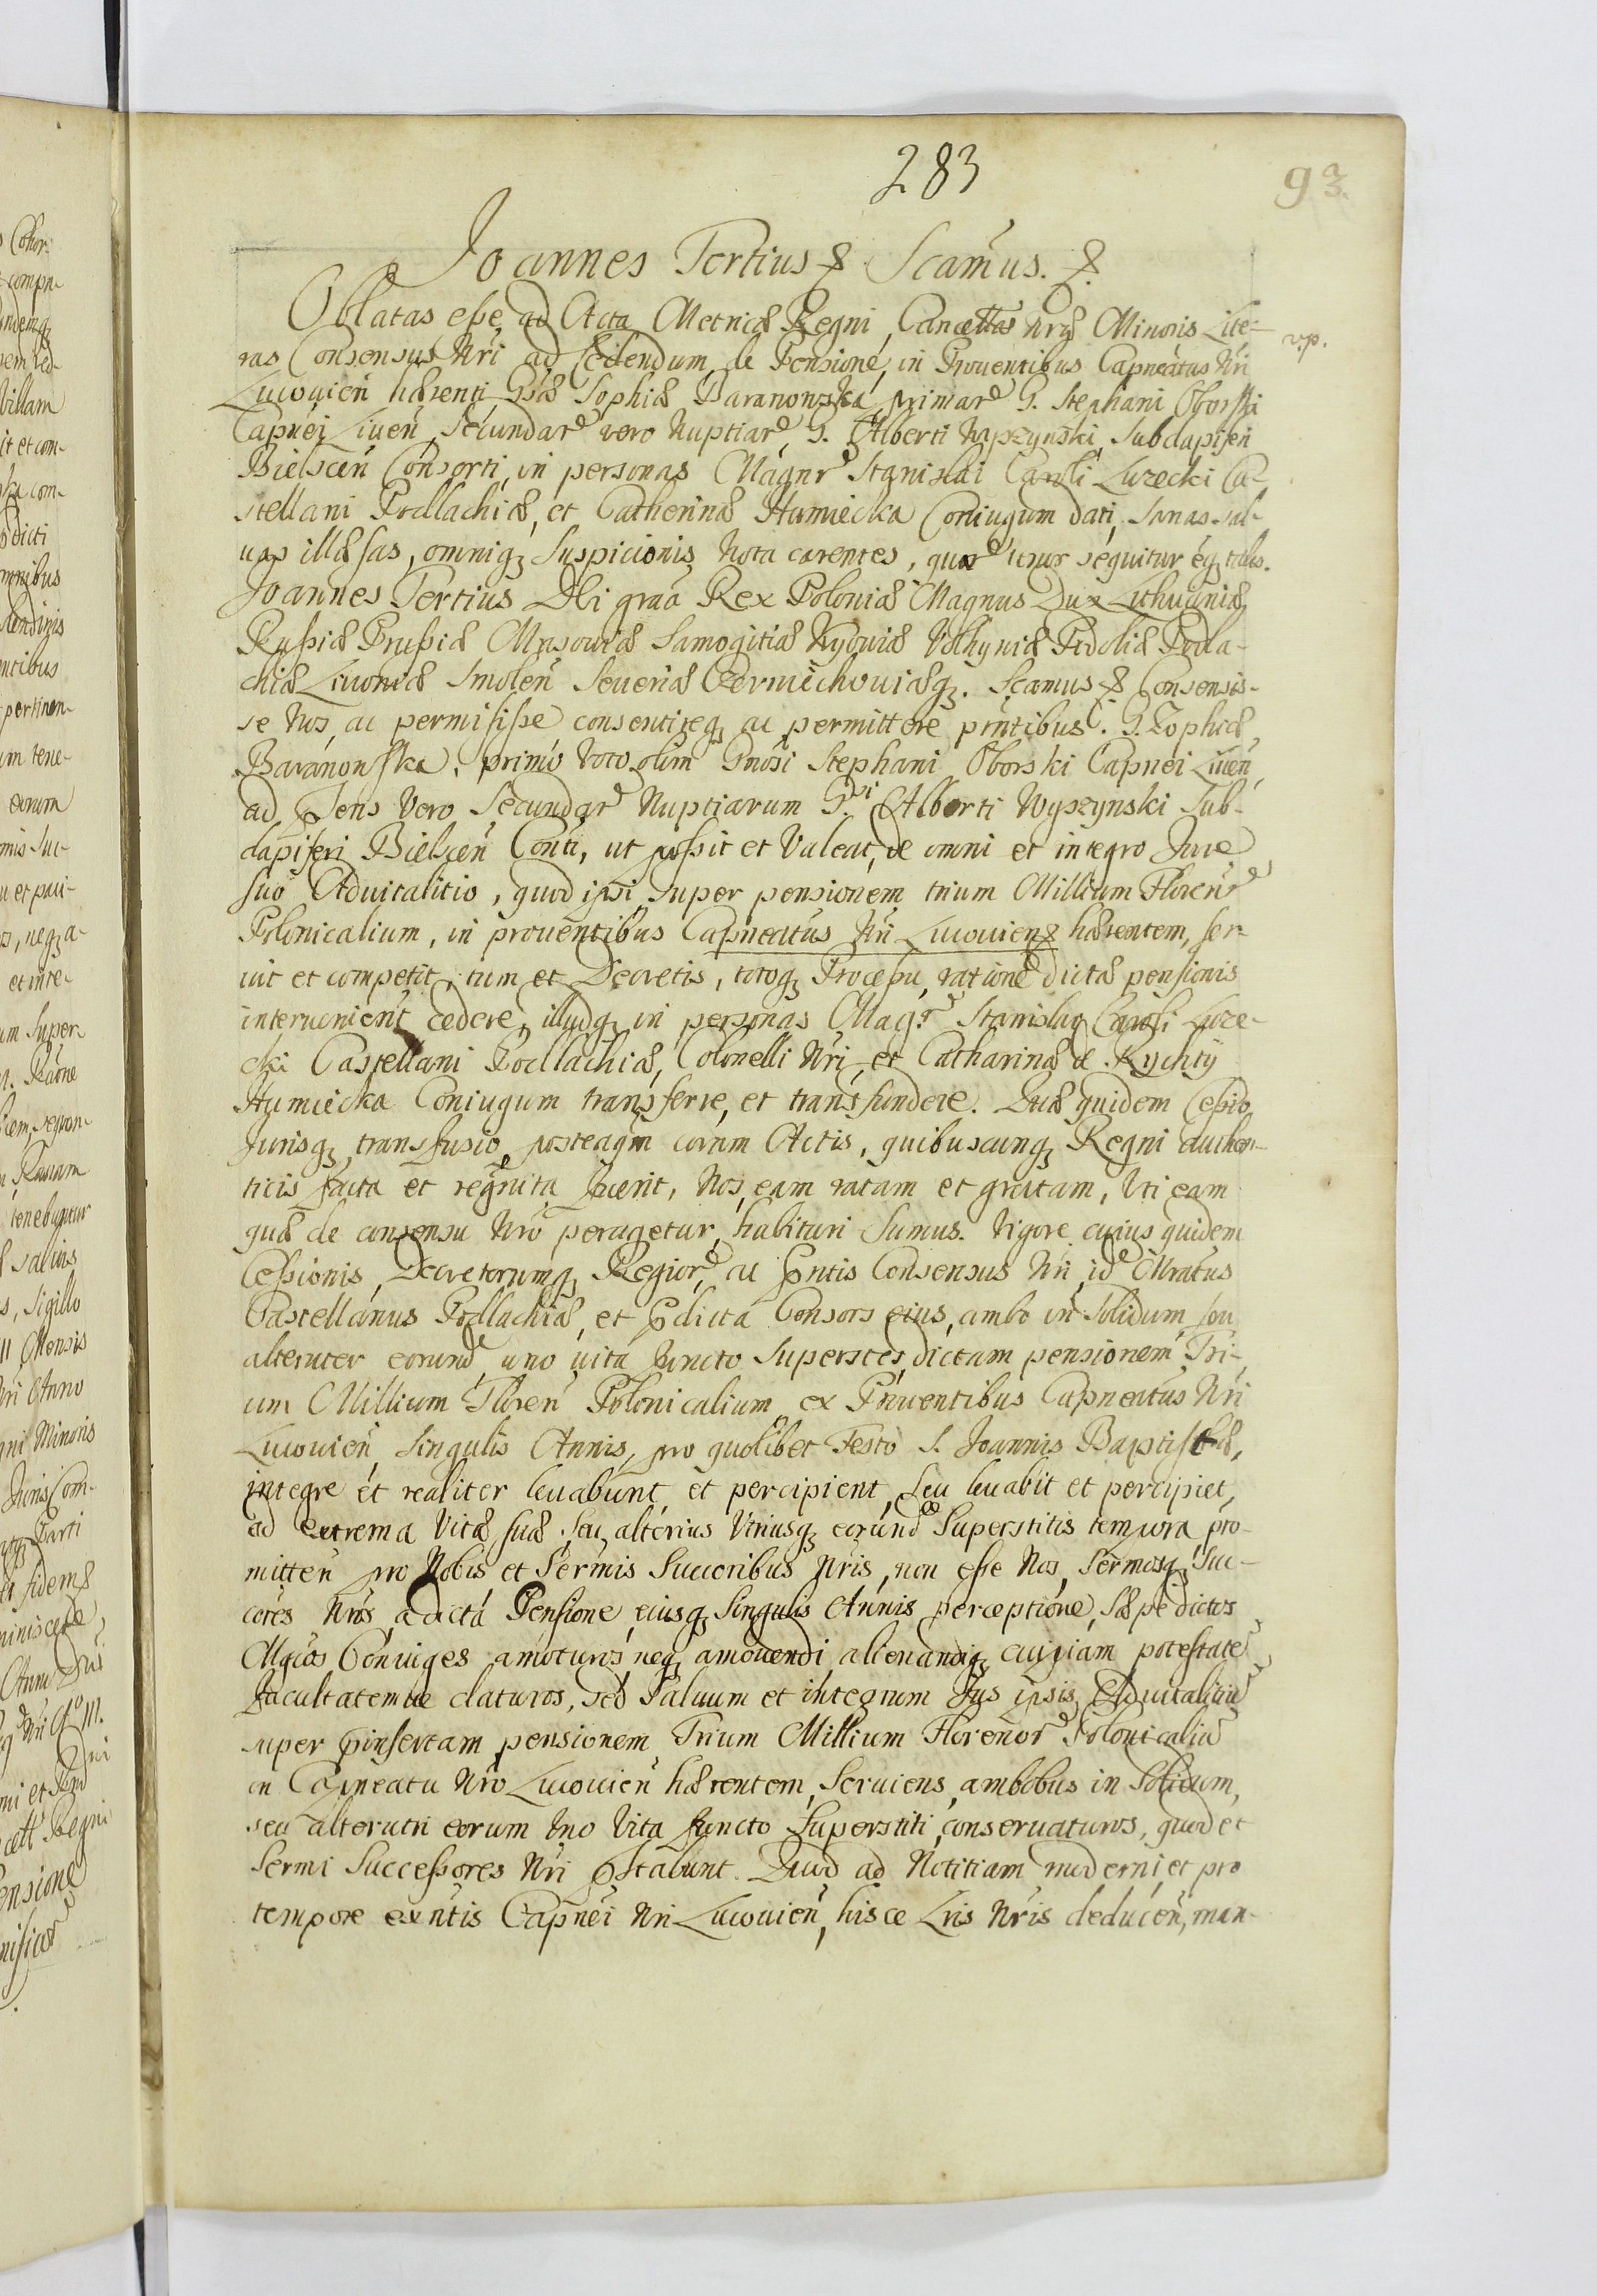 283
93.
Joannes Tertius & Scamus. &.
Oblatas esse ad Acta Metricæ Regni, Cancellæ Nræ Minoris Lite-
v.p.
ras Consensus Nri ad Cedendum de Pensione, in Prouentibus Capneatus Nri
Leouien hærenti Gsæ Sophiæ Baranowska, primar G. Stephani Oborski
Capnei Liuen, Secundar vero Nuptiar G. Alberti Wyszynski, Subdapiferi
Bielscen Consorti, in personas Magnr Stanislai Caroli Luzecki Ca-
stellani Podlachiæ, et Catherinæ Humiecka Coniugum dati, Sanas sal-
uas illæsas, omniq Suspicionis Nota carentes, quar tenor sequitur eq talis.
Joannes Tertius Dei graa Rex Poloniæ Magnus Dux Lithuaniæ
Russiæ Prussiæ Masouiæ Samogitiæ Kyouiæ Volhyniæ Podoliæ Podla-
chiæ Liuoniæ Smolen Seueriæ Czerniechouiæq. Scamus & Consensis-
se Nos, ac permisisse consentireq ac permittere pntibus. G. Zophiæ
Baranonska, primo voto olim Gnosi Stephani Oborski Capnei Liuen,
ad Pens Vero Secundar Nuptiarum G. Alberti Wyszynski Sub-
dapiferi Bielscen Conti, ut possit et Valeat, de omni et integro Jure
suo Aduitalitio, quod ipsi super pensionem trium Millium Floren
Polonicalium, in prouentibus Capneatus Nri Leouien & hærentem, ser-
uit et competit, tum et Decretis, totoq Processu, ratione dictæ pensionis
interuenient cedere, illudq in personas Mag. Stanislai Caroli Luze-
cki Castellani Podlachiæ, Colonelli Nri, et Catharinæ de Rychty
Humiecka Coniugum transferre, et transfundere. Quæ quidem Cessio
Jurisq transfusio, posteaqm coram Actis, quibuscunq Regni authen-
ticis facta et regnita fuerit, Nos eam ratam et gratam, Uti eam
quæ de consensu Nro peragetur, habituri Sumus. Vigore cuius quidem
Cessionis, Decretorumq Regior, ac pntis Consensus Nri, id Mratus
Castellanus Podlachiæ, et pdicta Consors eius, ambo in Solidum, seu
alteruter eorund uno uita functo Superstes, dictam pensionem Tri-
um Millium Floren Polonicalium, ex Prouentibus Capneatus Nri
Leouien, Singulis Annis, pro quolibet Festo S. Joannis Baptistæ,
integre et realiter leuabunt, et percipient, Seu leuabit et percipiet,
ad extrema Vitæ suæ, Seu alterius Utriusq eorund Superstitis tempora, pro-
mitten pro Nobis et Sermis Succoribus Nris, non esse Nos, Sermosq Suc-
cores Nros, a dicta Pensione, eiusq Singulis Annis perceptione, Sæpe dictos
Mgcos Coniuges amoturos, neq amouendi, alienandiq cuipiam potestate
Facultatemue daturos, sed Saluum et integrum Jus ipsis Aduitalitiu
super pinsertam pensionem Trium Millium Florenor Polonicaliu
in Capneatu Nro Leouien hærentem, Seruiens, ambobus in Solidum,
seu alterutri eorum Uno Vita functo Superstiti, conseruaturos, quod et
Sermi Successores Nri pstabunt. Quod ad Notitiam moderni, et pro
tempore exntis Capnei Nri Leouien, hisce Lris Nris deducen, man-